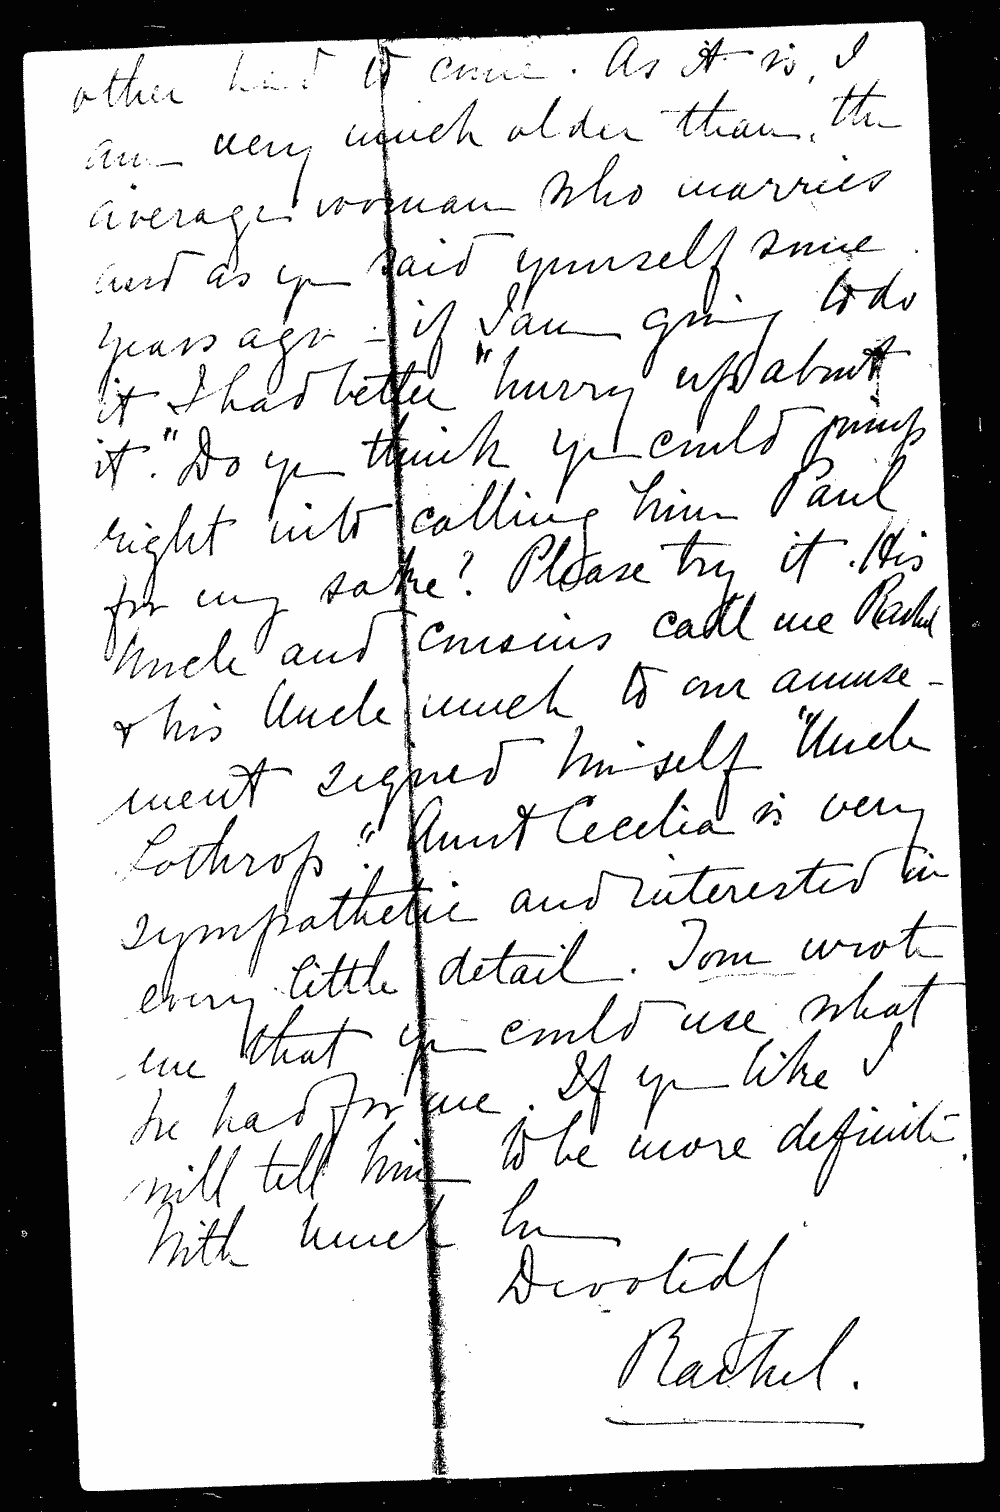 other had to come. As it is, I
am very much older than the
average woman who marries
and as you said yourself some
years ago - if I am going to do
it I had better "hurry up about
it." Do you think you could jump
right into calling him Paul
for my sake? Please try it. His
Uncle and cousins call me Rachel
& his Uncle much to our amuse-
ment signed himself "Uncle
Lothrop". Aunt Cecelia is very
sympathetic and interested in
every little detail. Tom wrote
me that you could use what
he had for me. If you like I
will tell him to be more definite.
With much love
Devotedly
Rachel.